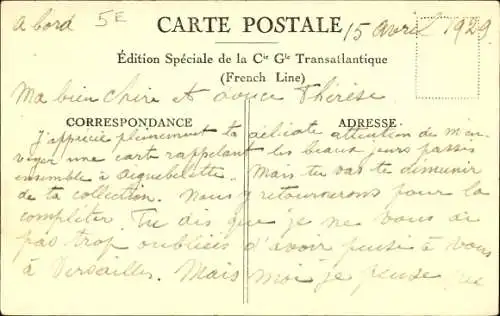 a bord 5E CARTE POSTALE 15 avril 1929
Édition Spéciale de la Cie Gle Transatlantique
(French Line)
Ma bien chère et douce Thérèse
CORRESPONDANCE ADRESSE
J'apprécie pleinement ta délicate attention de m'en
voyer une carte rappelant les beaux jours passés
ensemble à Aiguebelette. Mais tu vas te démunir
de ta collection. Nous y retournerons pour la
compléter. Tu dis que je ne vous ai
pas trop oubliées d'avoir pensé à vous
à Versailles. Mais moi je pense que